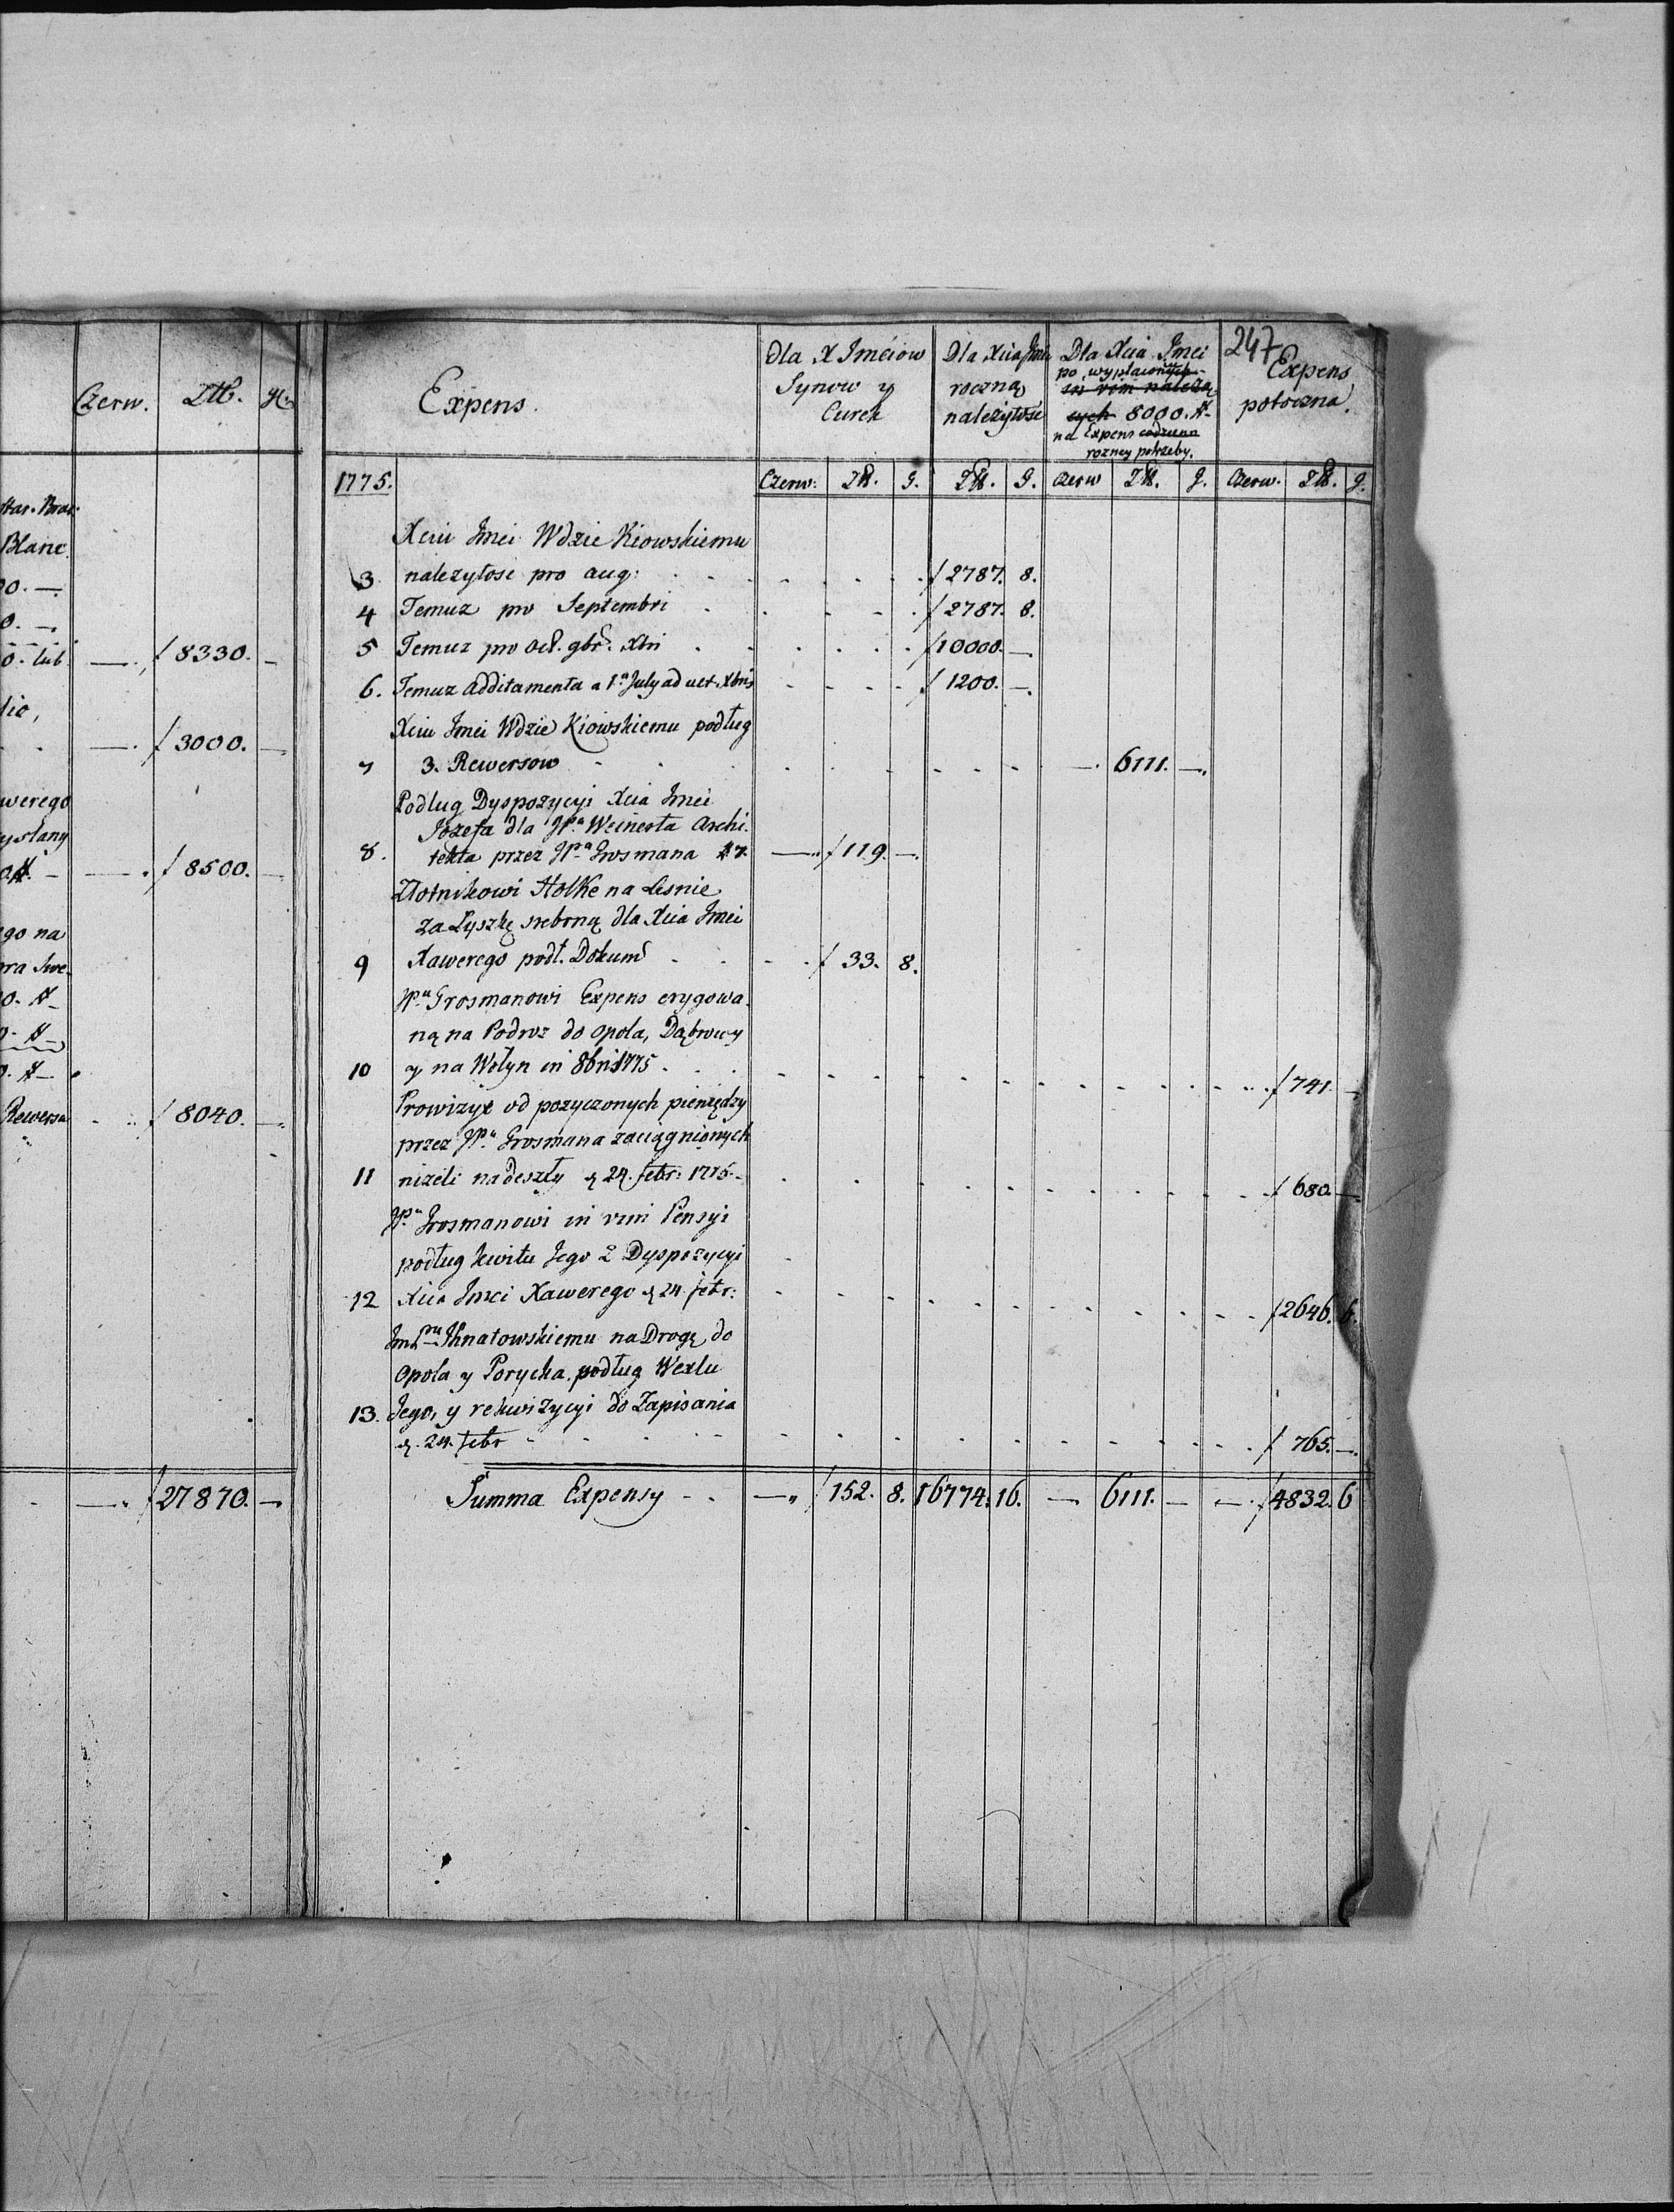 Czerw. Złł. gr.
star. Brac.
Blanc.
00. —
0. —
0. lub — f 8330. —
lio,
— f 3000. —
werego
ysłany
— f 8500. —
go na
pra Swe
Rewersu f 8040. —
— f 27870. —
247
Expens.
Dla X Jmciow Synow y Curek
Dla Xcia Jmci roczna należytość
Dla Xcia Jmci po wypłaconych in vim należących 8000. # na Expens codzienn rozney potrzeby.
Expens potoczna.
1775. Czerw: Złł. g. Złł. g. Czerw Złł. g. Czerw. Złł. g.
Xciu Jmci Wdzie Kiowskiemu
3 należytosc pro aug: f 2787. 8.
4 Temuz pro Septembri f 2787. 8.
5 Temuz pro Oct. 9br. Xbri f 10000. —.
6. Temuz additamenta a 1a July ad ult. Xbris f 1200. —.
Xciu Jmci Wdzie Kiowskiemu podług
7 3. Rewersow — 6111. —.
Podlug Dyspozycyi Xcia Jmci
Jozefa dla JPa Weinerta Archi.
8. tekta przez JPa Grosmana # 7. — f 119. —.
Złotnikowi Holke na Lesnie
za Łyszkę srebrną dla Xcia Jmci
9 Xawerego podł. Dokum f 33. 8.
JPu Grosmanowi Expens erygowa.
ną na Podroz do Opola, Dąbrowy
10 y na Wołyn in 8bri 1775. f 741. —
Prowizye od pozyczonych pieniędzy
przez JPa Grosmana zaciągnionych
11 nizeli nadeszły d 24. febr: 1775. f 680. —
JPu Grosmanowi in vim Pensyi
podług kwitu Jego z Dyspozycyi
12 Xcia Jmci Xawerego d 24. febr: f 2646. 6.
JmPnu Ihnatowskiemu na Drogę do
Opola y Porycka podług Wexlu
13. Jego, y rekwizycyi do Zapisania
d. 24. febr f 765. —.
Summa Expensy — f 152. 8. 16774. 16. — 6111. — — f 4832. 6